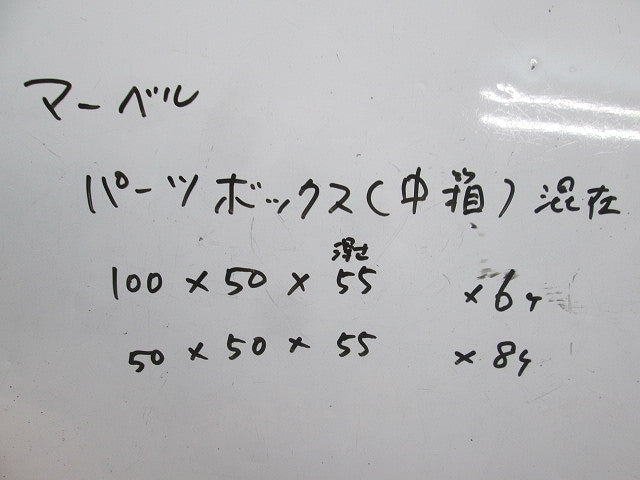 マーベル
パーツボックス(中箱)混在
深さ
100 × 50 × 55 × 6ケ
50 × 50 × 55 × 8ケ